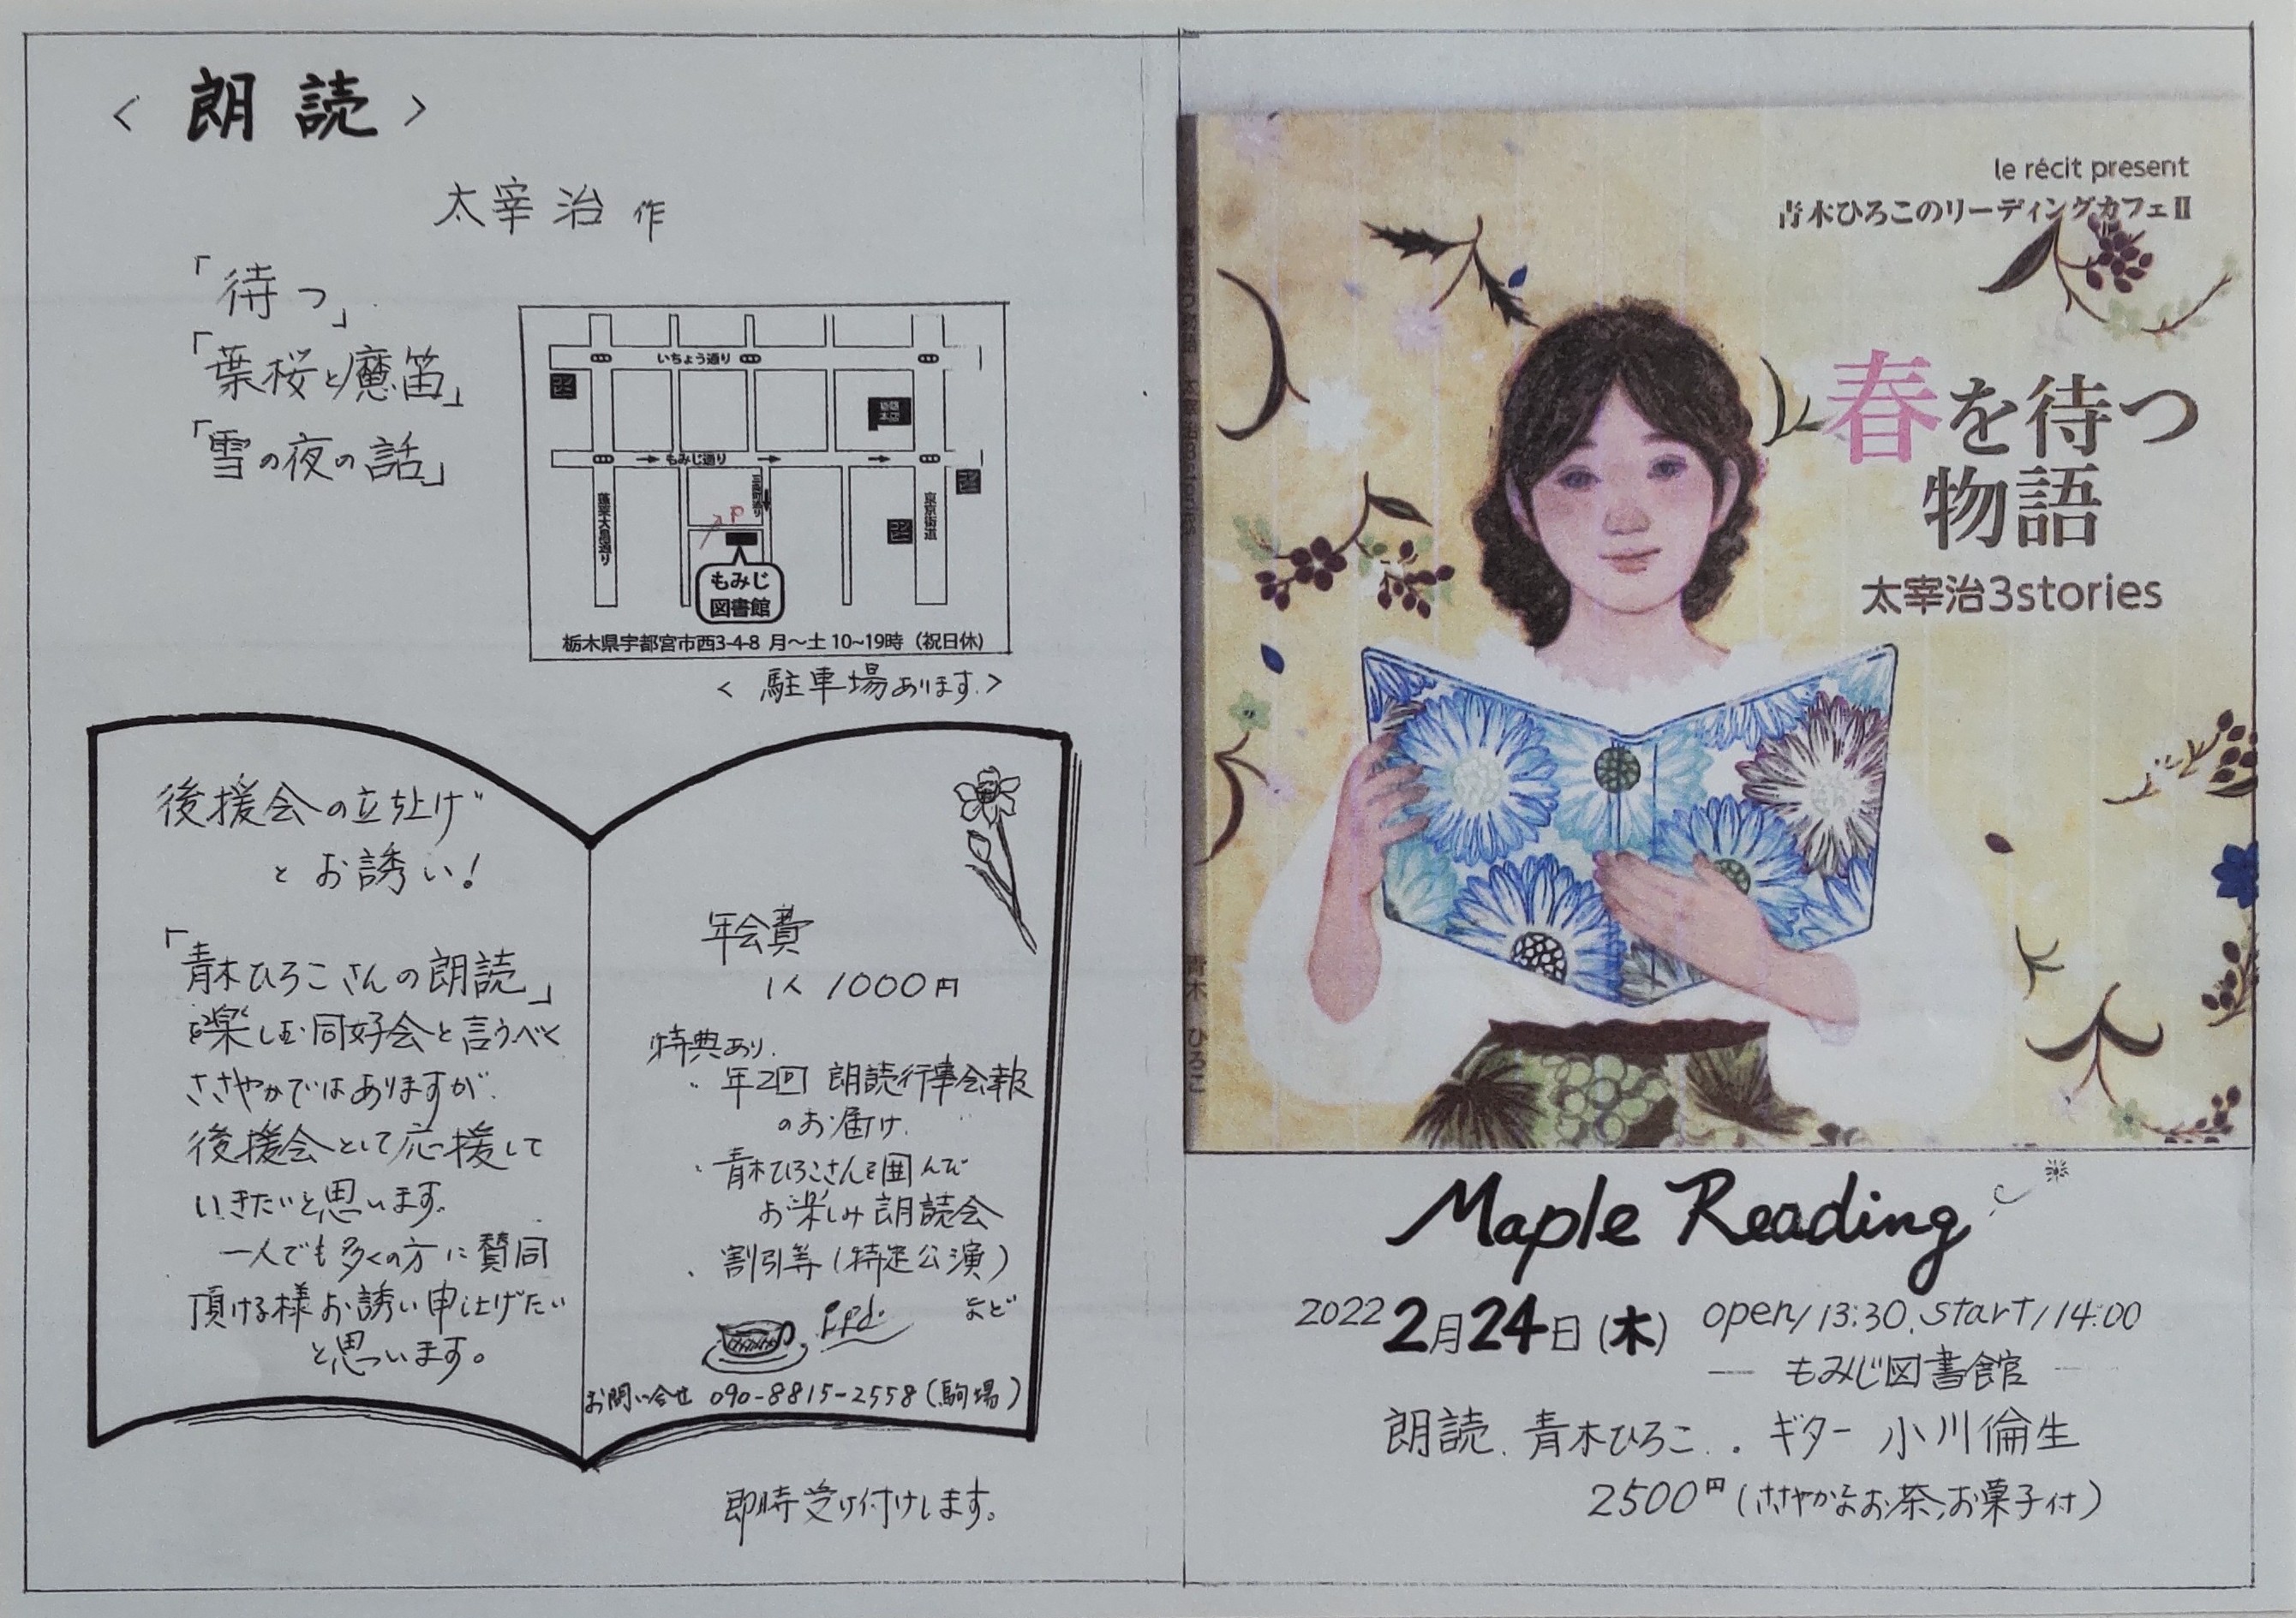 <朗読>
太宰治 作
「待つ」
「葉桜と魔笛」
「雪の夜の話」
いちょう通り
もみじ通り
蓬莱大黒通り
東京街道
コンビニ
P
もみじ
図書館
栃木県宇都宮市西3-4-8 月〜土 10~19時 (祝日休)
<駐車場あります.>
後援会の立ち上げ
とお誘い!
「青木ひろこさんの朗読」
を楽しむ同好会と言うべく
ささやかではありますが.
後援会として応援して
いきたいと思います.
一人でも多くの方に賛同
頂ける様お誘い申し上げたい
と思います。
年会費
1人 1000円
特典あり.
・年2回 朗読行事会報
のお届け.
・青木ひろこさんを囲んで
お楽しみ朗読会
・割引等(特定公演)
など
お問い合せ 090-8815-2558(駒場)
即時受け付けします。
le récit present
青木ひろこのリーディングカフェⅡ
春を待つ
物語
太宰治3stories
青木 ひろこ
Maple Reading
2022 2月24日(木) open/13:30. start/14:00
― もみじ図書館 ―
朗読. 青木ひろこ . ギター 小川倫生
2500円(ささやかなお茶、お菓子付)